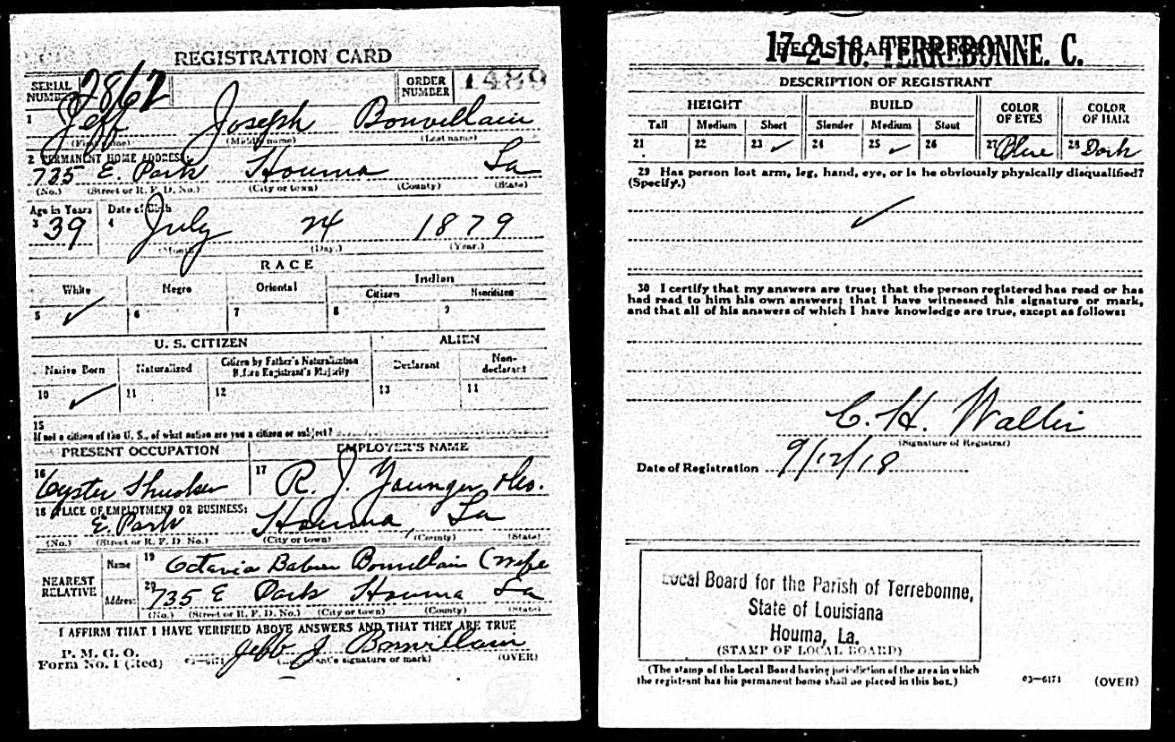 REGISTRATION CARD
SERIAL NUMBER 2862 ORDER NUMBER 1489
1 Jeff Joseph Bonvillain
(First name) (Middle name) (Last name)
2 PERMANENT HOME ADDRESS:
735 E. Park Houma La
(No.) (Street or R. F. D. No.) (City or town) (County) (State)
Age in Years Date of Birth
3 39 4 July 24 1879
(Month) (Day.) (Year.)
RACE
White Negro Oriental Indian
Citizen Noncitizen
5 ✓ 6 7 8 9
U. S. CITIZEN ALIEN
Native Born Naturalized Citizen by Father's Naturalization Before Registrant's Majority Declarant Non-declarant
10 ✓ 11 12 13 14
15
If not a citizen of the U. S., of what nation are you a citizen or subject?
PRESENT OCCUPATION EMPLOYER'S NAME
16 Oyster Shucker 17 R. J. Younger
18 PLACE OF EMPLOYMENT OR BUSINESS:
E. Park Houma, La
(No.) (Street or R. F. D. No.) (City or town) (County) (State)
NEAREST RELATIVE Name 19 Octavia Babin Bonvillain (wife
Address 20 735 E Park Houma La
(No.) (Street or R. F. D. No.) (City or town) (County) (State)
I AFFIRM THAT I HAVE VERIFIED ABOVE ANSWERS AND THAT THEY ARE TRUE
P. M. G. O.
Form No. 1 (Red) 03—6171 Jeff J Bonvillain
(Registrant's signature or mark) (OVER)
17-2-16. TERREBONNE. C.
REGISTRAR'S REPORT
DESCRIPTION OF REGISTRANT
HEIGHT BUILD COLOR OF EYES COLOR OF HAIR
Tall Medium Short Slender Medium Stout
21 22 23 ✓ 24 25 ✓ 26 27 Blue 28 Dark
29 Has person lost arm, leg, hand, eye, or is he obviously physically disqualified?
(Specify.)
✓
30 I certify that my answers are true; that the person registered has read or has
had read to him his own answers; that I have witnessed his signature or mark,
and that all of his answers of which I have knowledge are true, except as follows:
C. H. Waller
(Signature of Registrar)
Date of Registration 9/12/18
Local Board for the Parish of Terrebonne,
State of Louisiana
Houma, La.
(STAMP OF LOCAL BOARD)
(The stamp of the Local Board having jurisdiction of the area in which
the registrant has his permanent home shall be placed in this box.)
03—6171 (OVER)